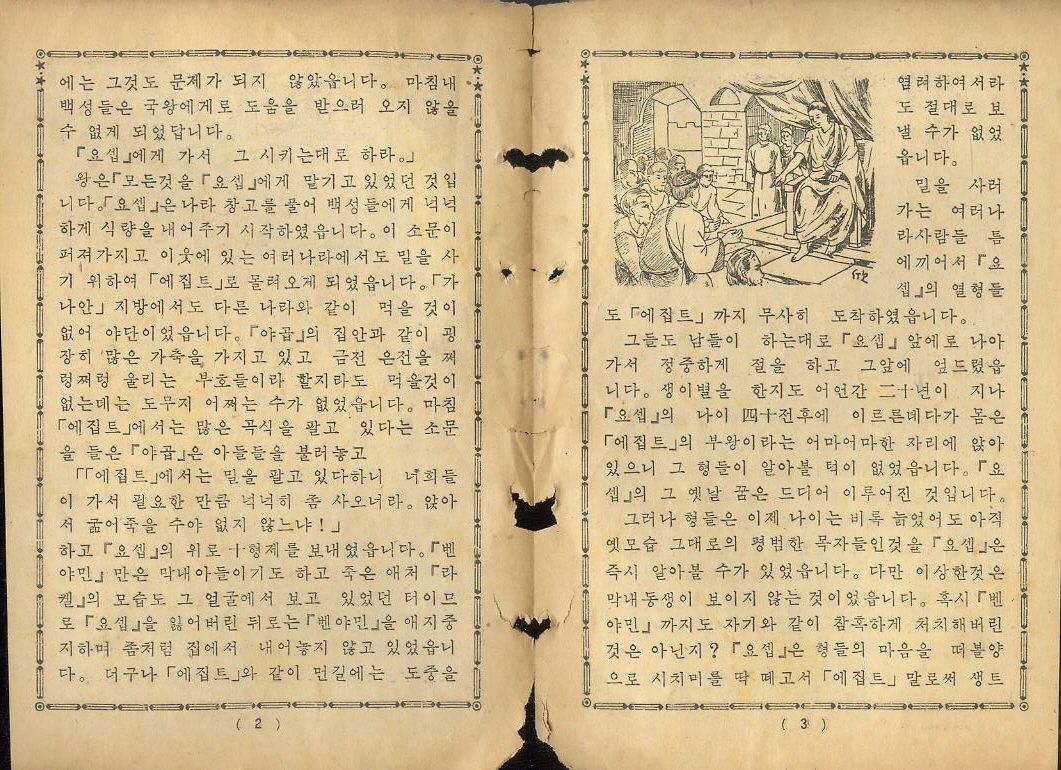 에는 그것도 문제가 되지 않았읍니다。 마침내
백성들은 국왕에게로 도움을 받으러 오지 않을
수 없게 되었답니다。
『요셉』에게 가서 그 시키는대로 하라。」
왕은『모든것을 『요셉』에게 맡기고 있었던 것입
니다。「요셉』은 나라 창고를 풀어 백성들에게 넉넉
하게 식량을 내어주기 시작하였읍니다。이 소문이
퍼져가지고 이웃에 있는 여러나라에서도 밀을 사
기 위하여 「에집트」로 몰려오게 되었읍니다。「가
나안」 지방에서도 다른 나라와 같이 먹을 것이
없어 야단이었읍니다。『야곱』의 집안과 같이 굉
장히 많은 가축을 가지고 있고 금전 은전을 쩌
렁쩌렁 울리는 부호들이라 할지라도 먹을것이
없는데는 도무지 어쩌는 수가 없었읍니다。마침
「에집트」에서는 많은 곡식을 팔고 있다는 소문
을 들은 『야곱』은 아들들을 불러놓고
「「에집트」에서는 밀을 팔고 있다하니 너희들
이 가서 필요한 만큼 넉넉히 좀 사오너라。앉아
서 굶어죽을 수야 없지 않느냐！」
하고 『요셉』의 위로 十형제를 보내었읍니다。『벤
야민』 만은 막내아들이기도 하고 죽은 애처 『라
켈』의 모습도 그 얼굴에서 보고 있었던 터이므
로 『요셉』을 잃어버린 뒤로는『벤야민』을 애지중
지하며 좀처럼 집에서 내어놓지 않고 있었읍니
다。 더구나 「에집트」와 같이 먼길에는 도중을
( 2 )
염려하여서라
도 절대로 보
낼 수가 없었
읍니다。
밀을 사러
가는 여러나
라사람들 틈
에끼어서 『요
셉』의 열형들
도 「에집트」 까지 무사히 도착하였읍니다。
그들도 남들이 하는대로 『요셉』 앞에로 나아
가서 정중하게 절을 하고 그앞에 엎드렸읍
니다。생이별을 한지도 어언간 二十년이 지나
『요셉』의 나이 四十전후에 이르른데다가 몸은
「에집트」의 부왕이라는 어마어마한 자리에 앉아
있으니 그 형들이 알아볼 턱이 없었읍니다。『요
셉』의 그 옛날 꿈은 드디어 이루어진 것입니다。
그러나 형들은 이제 나이는 비록 늙었어도 아직
옛모습 그대로의 평범한 목자들인것을 『요셉』은
즉시 알아볼 수가 있었읍니다。다만 이상한것은
막내동생이 보이지 않는 것이었읍니다。혹시 『벤
야민』 까지도 자기와 같이 참혹하게 처치해버린
것은 아닌지？ 『요셉』은 형들의 마음을 떠볼양
으로 시치미를 딱 떼고서 「에집트」 말로써 생트
( 3 )